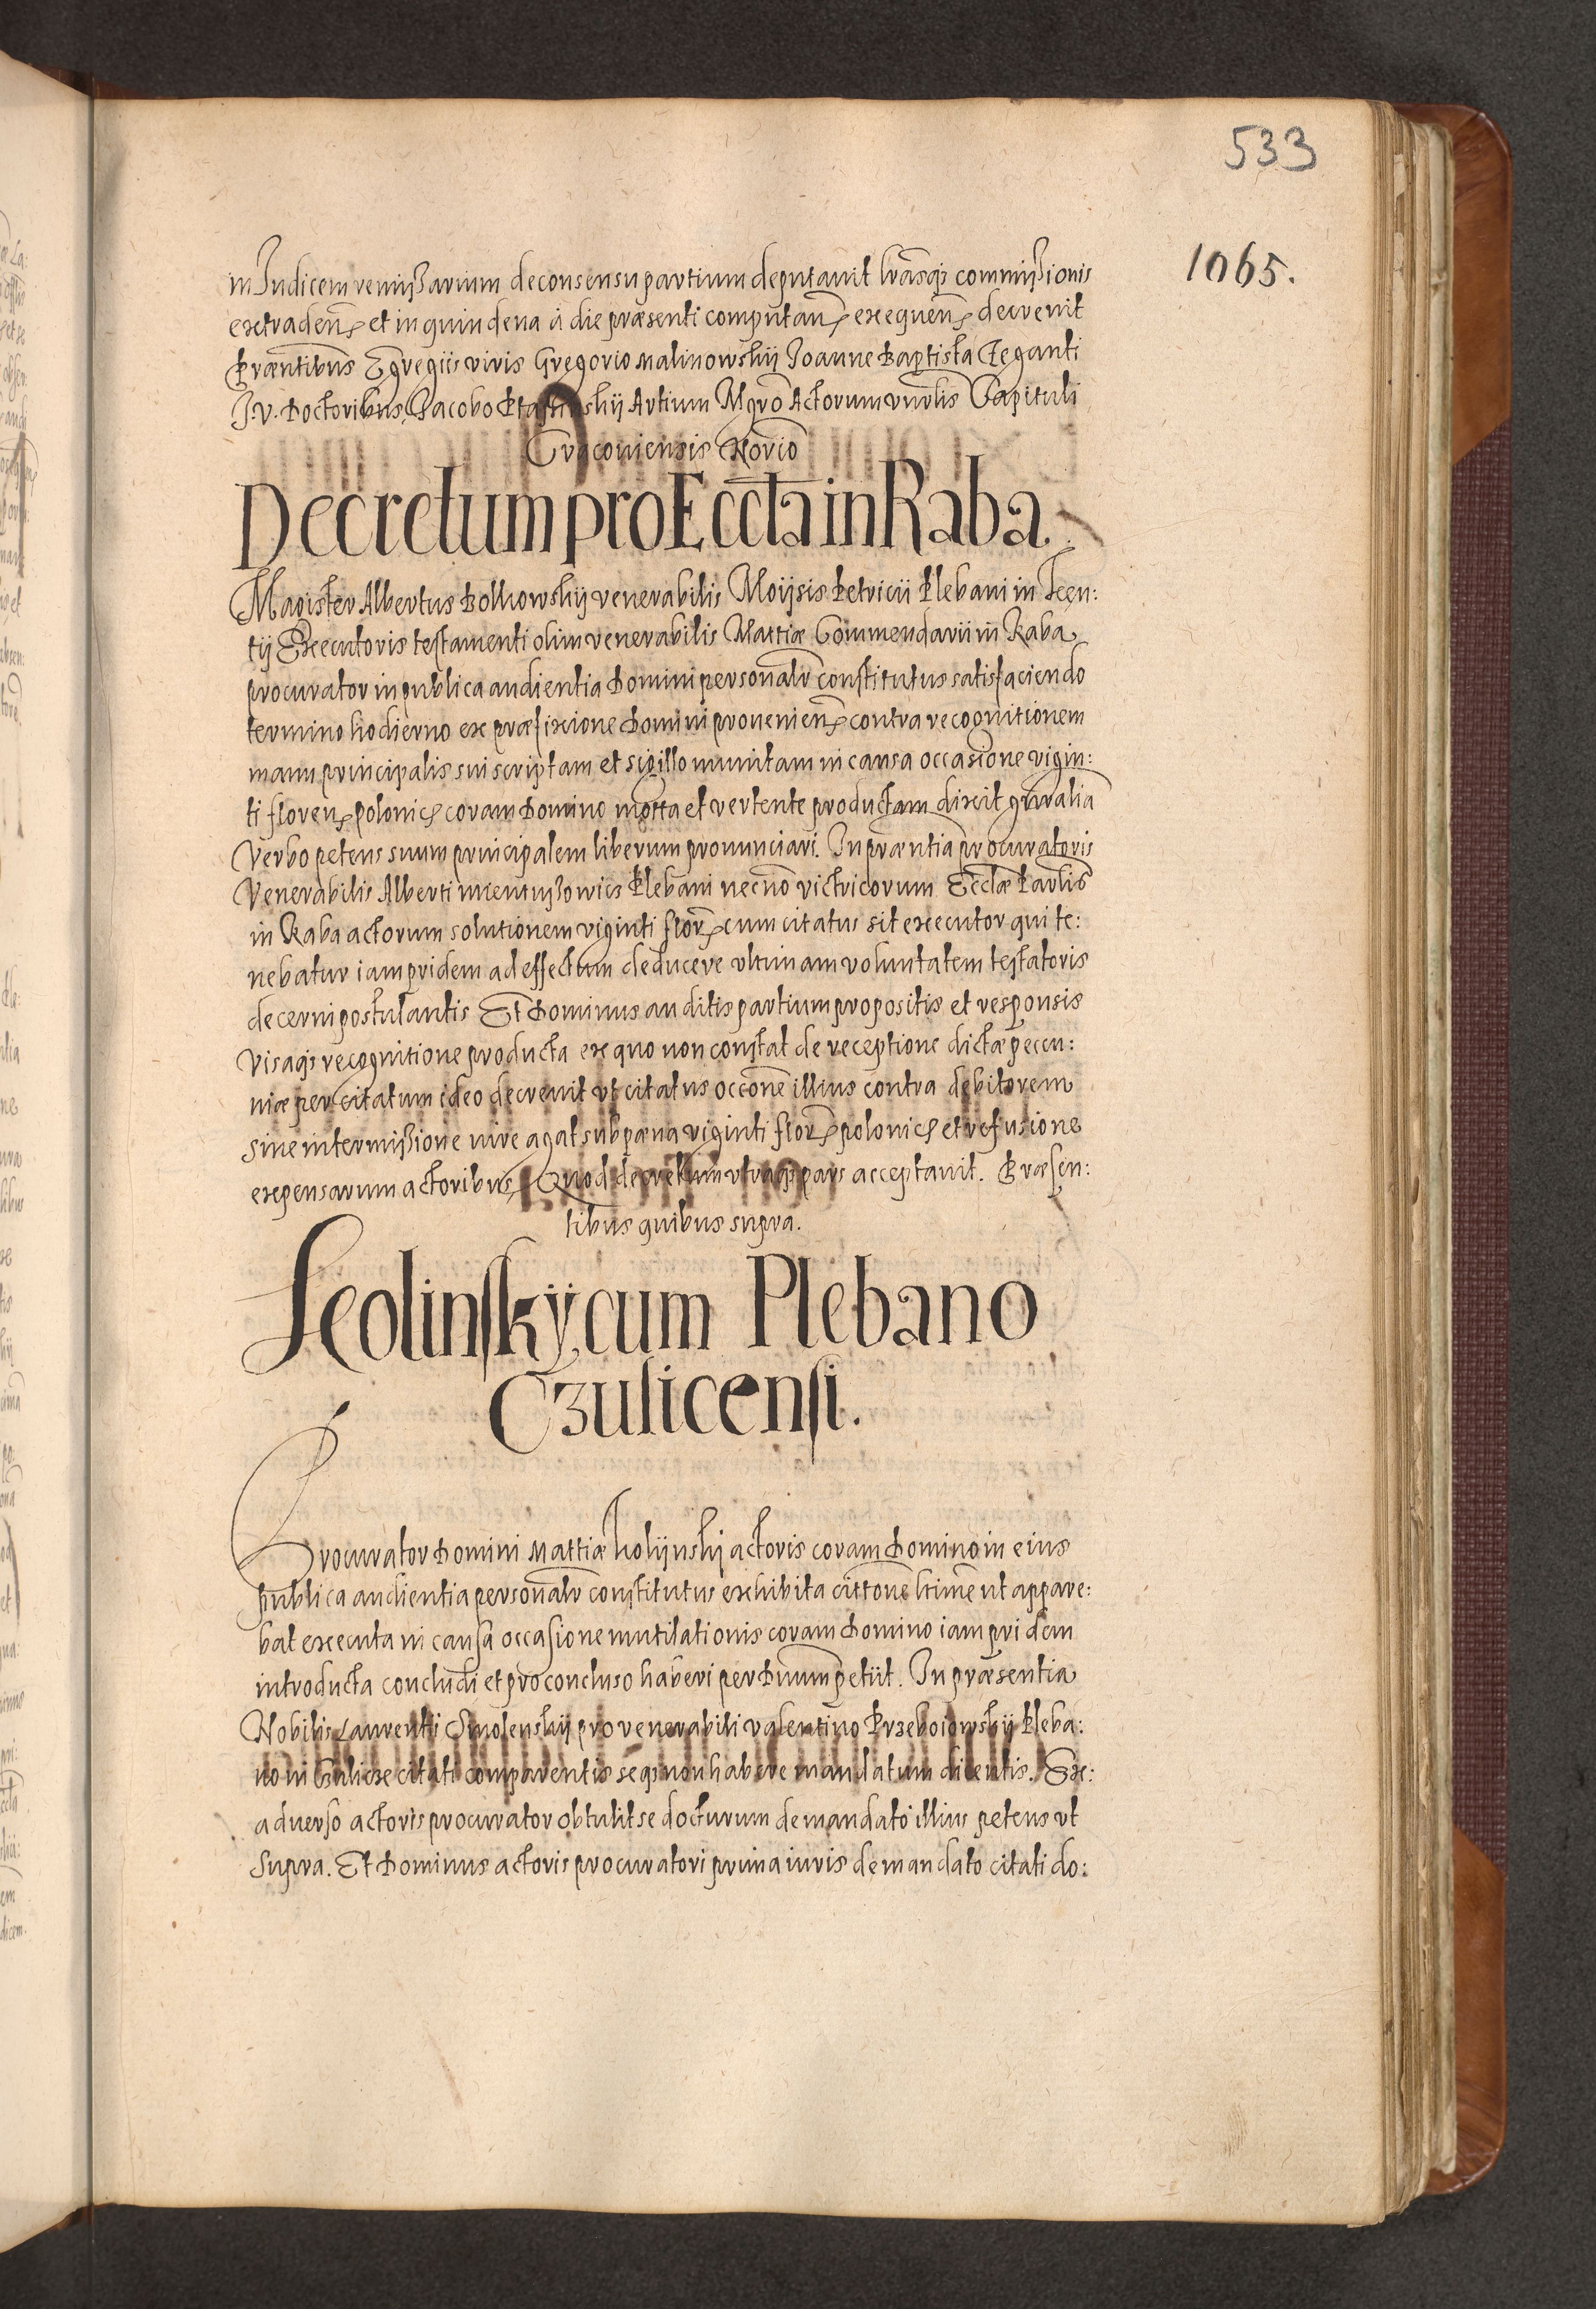 533
1065.
in Judicem remissarium de consensu partium deputavit lrãsq3 commissionis
extraden et in quindena à die præsenti computan exequen decrevit
Præntibus Egregiis viris Gregorio Malinowskij Joanne Baptista Teganti
J. V. Doctoribus, Jacobo Artium Mgro Actorum vnrlis Capituli
Cracoviensis Norio
Decretum pro Eccta in Raba
Magister Albertus Bolkowskij venerabilis Moijsis Petricii Plebani in Teen:
tij Executoris testamenti olim venerabilis Mattiæ Commendarii in Raba
procurator in publica audientia Domini personalr constitutus satisfaciendo
termino hodierno ex præfixione Domini provenien contra recognitionem
manu principalis sui scriptam et sigillo munitam in causa occasione vigin:
ti floren polonic coram Domino motta et vertente productam dixit gnralia
Verbo petens suum principalem liberum pronunciari. In præntia procuratoris
Venerabilis Alberti Plebani necnõ victricorum Ecclæ Parlis
in Raba actorum solutionem viginti flor cum citatus sit executor qui te:
nebatur iam pridem ad effectum deducere vltimam voluntatem testatoris
decerni postulantis Et Dominus auditis partium propositis et responsis
Visaq3 recognitione producta ex quo non constat de receptione dictæ pecu:
niæ per citatum ideo decrevit vt citatus occõne illius contra debitorem
sine intermissione iure agat sub pæna viginti flor polonic et refusione
expensarum actoribus Quod decretum vtraq3 pars acceptavit. Præsen:
tibus quibus supra.
Leolinskÿ cum Plebano
Czulicensi.
Procurator Domini Mattiæ kolijnskj actoris coram Domino in eius
publica audientia personalr constitutus exhibita cittone ltime ut appare:
bat executa in causa occasione mutilationis coram Domino iam pridem
introducta concludi et pro concluso haberi per Dnum petiit. In præsentia
Nobilis Laurentii Smolenskij pro venerabili Valentino Przeboiowskij Pleba:
no in Czulicze citati comparentis seq3 non habere mandatum dicentis. Ex:
adverso actoris procurator obtulit se docturum de mandato illius petens vt
supra. Et Dominus actoris procuratori prima iuris de mandato citati do: